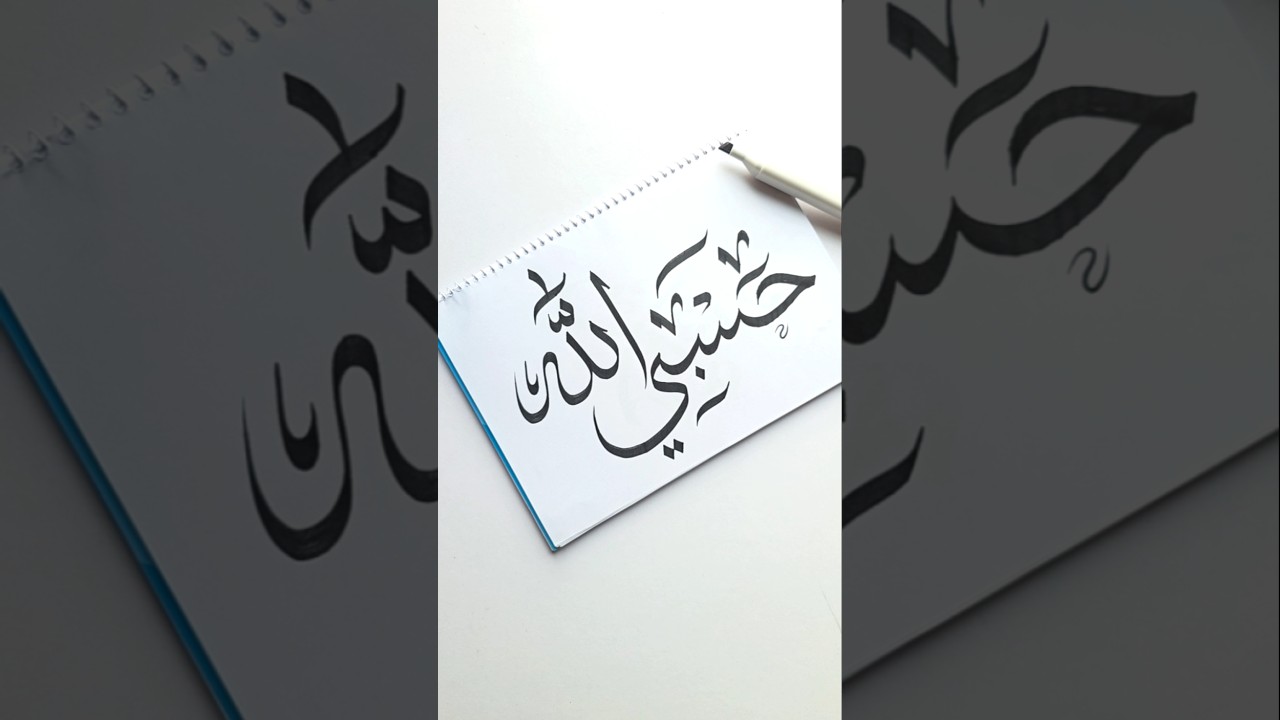 حَسْبِيَ اللّٰه